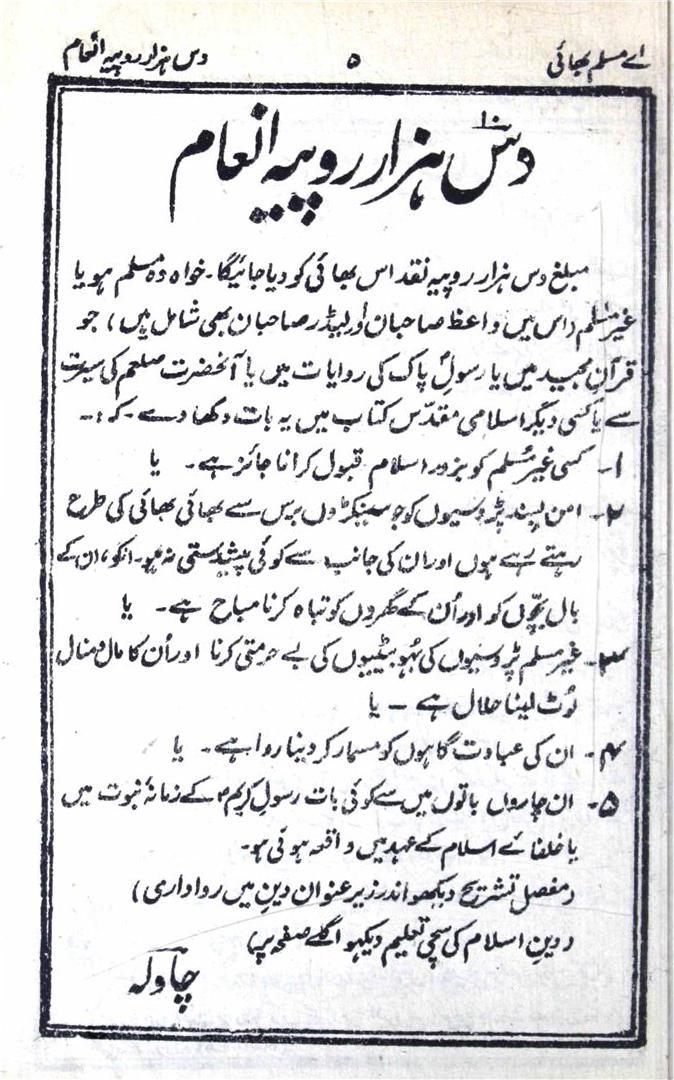 اے مسلم بھائی ۵ دس ہزار روپیہ انعام
دس۱۰ ہزار روپیہ انعام
مبلغ دس ہزار روپیہ نقد اس بھائی کو دیا جائیگا۔ خواہ وہ مسلم ہو یا
غیر مسلم (اس میں واعظ صاحبان اور لیڈر صاحبان بھی شامل ہیں) جو
قرآن مجید میں یا رسولِ پاک کی روایات میں یا آنحضرت صلعم کی سیرت
سے یا کسی دیگر اسلامی مقدّس کتاب میں یہ بات دکھا دے۔ کہ:۔
۱۔ کسی غیر مُسلم کو بزور اسلام قبول کرانا جائز ہے۔ یا
۲۔ امن پسند پڑوسیوں کو جو سینکڑوں برس سے بھائی بھائی کی طرح
رہتے رہے ہوں اور ان کی جانب سے کوئی پیشدستی نہ ہو۔ انکو، ان کے
بال بچّوں کو اور اُن کے گھروں کو تباہ کرنا مباح ہے۔ یا
۳۔ غیر مسلم پڑوسیوں کی بہُو بیٹیوں کی بے حرمتی کرنا اور اُن کا مال و منال
لُوٹ لینا حلال ہے ۔ یا
۴۔ ان کی عبادت گاہوں کو مسمار کر دینا روا ہے۔ یا
۵۔ ان چاروں باتوں میں سے کوئی بات رسولِ کریمؐ کے زمانۂ نبوت میں
یا خلفائے اسلام کے عہد میں واقعہ ہوئی ہو۔
(مفصل تشریح دیکھو اندر زیر عنوان دین میں رواداری)
(دینِ اسلام کی سچی تعلیم دیکھو اگلے صفحہ پر)
چاولہ